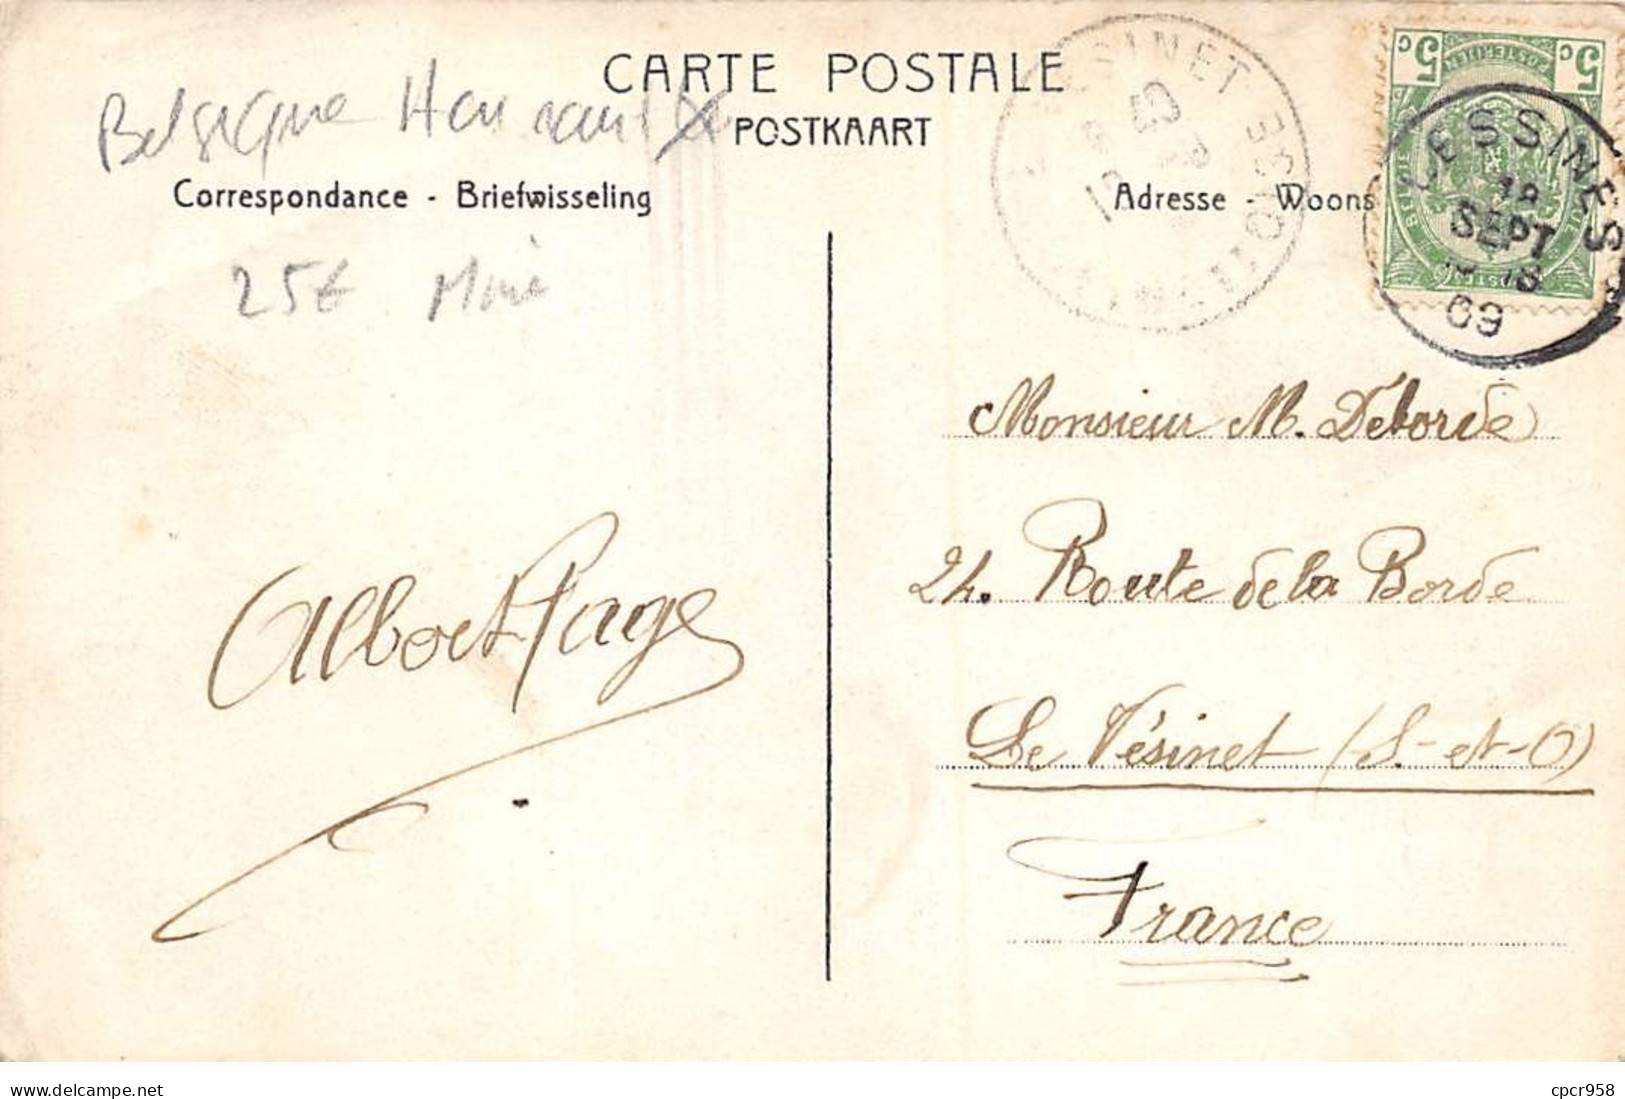 CARTE POSTALE
POSTKAART
Belgique Hainaut
Correspondance - Briefwisseling
Adresse - Woons
25€
LESSINES
18
SEPT
18
09
5c
5c
Monsieur M. Deborde
24. Route de la Borde
Le Vésinet (S.-et-O)
France
Albert Page
www.delcampe.net
cpcr958